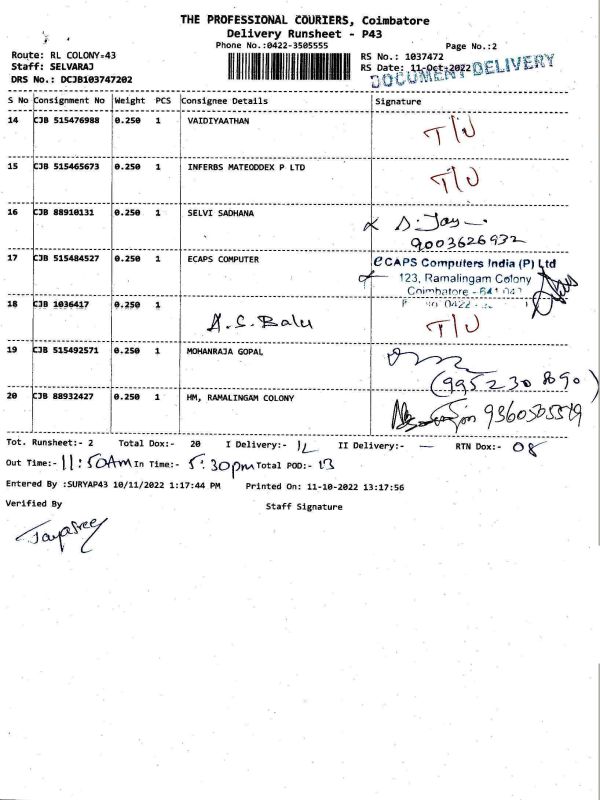 THE PROFESSIONAL COURIERS, Coimbatore
Delivery Runsheet - P43
Phone No.:0422-3505555
Page No.:2
Route: RL COLONY-43
RS No.: 1037472
Staff: SELVARAJ
RS Date: 11-Oct-2022
DRS No.: DCJB103747202
DOCUMENT DELIVERY
S No Consignment No Weight PCS Consignee Details Signature
14 CJB 515476988 0.250 1 VAIDIYAATHAN
15 CJB 515465673 0.250 1 INFERBS MATEODDEX P LTD
16 CJB 88910131 0.250 1 SELVI SADHANA
9003626932
17 CJB 515484527 0.250 1 ECAPS COMPUTER
eCAPS Computers India (P) Ltd
123, Ramalingam Colony
Coimbatore - 641 043
18 CJB 1036417 0.250 1
19 CJB 515492571 0.250 1 MOHANRAJA GOPAL
(9952308090)
20 CJB 88932427 0.250 1 HM, RAMALINGAM COLONY
Tot. Runsheet:- 2 Total Dox:- 20 I Delivery:- 12 II Delivery:- — RTN Dox:- 08
Out Time:- 11:50AM In Time:- 5:30pm Total POD:- 13
Entered By :SURYAP43 10/11/2022 1:17:44 PM Printed On: 11-10-2022 13:17:56
Verified By Staff Signature
Jayasree